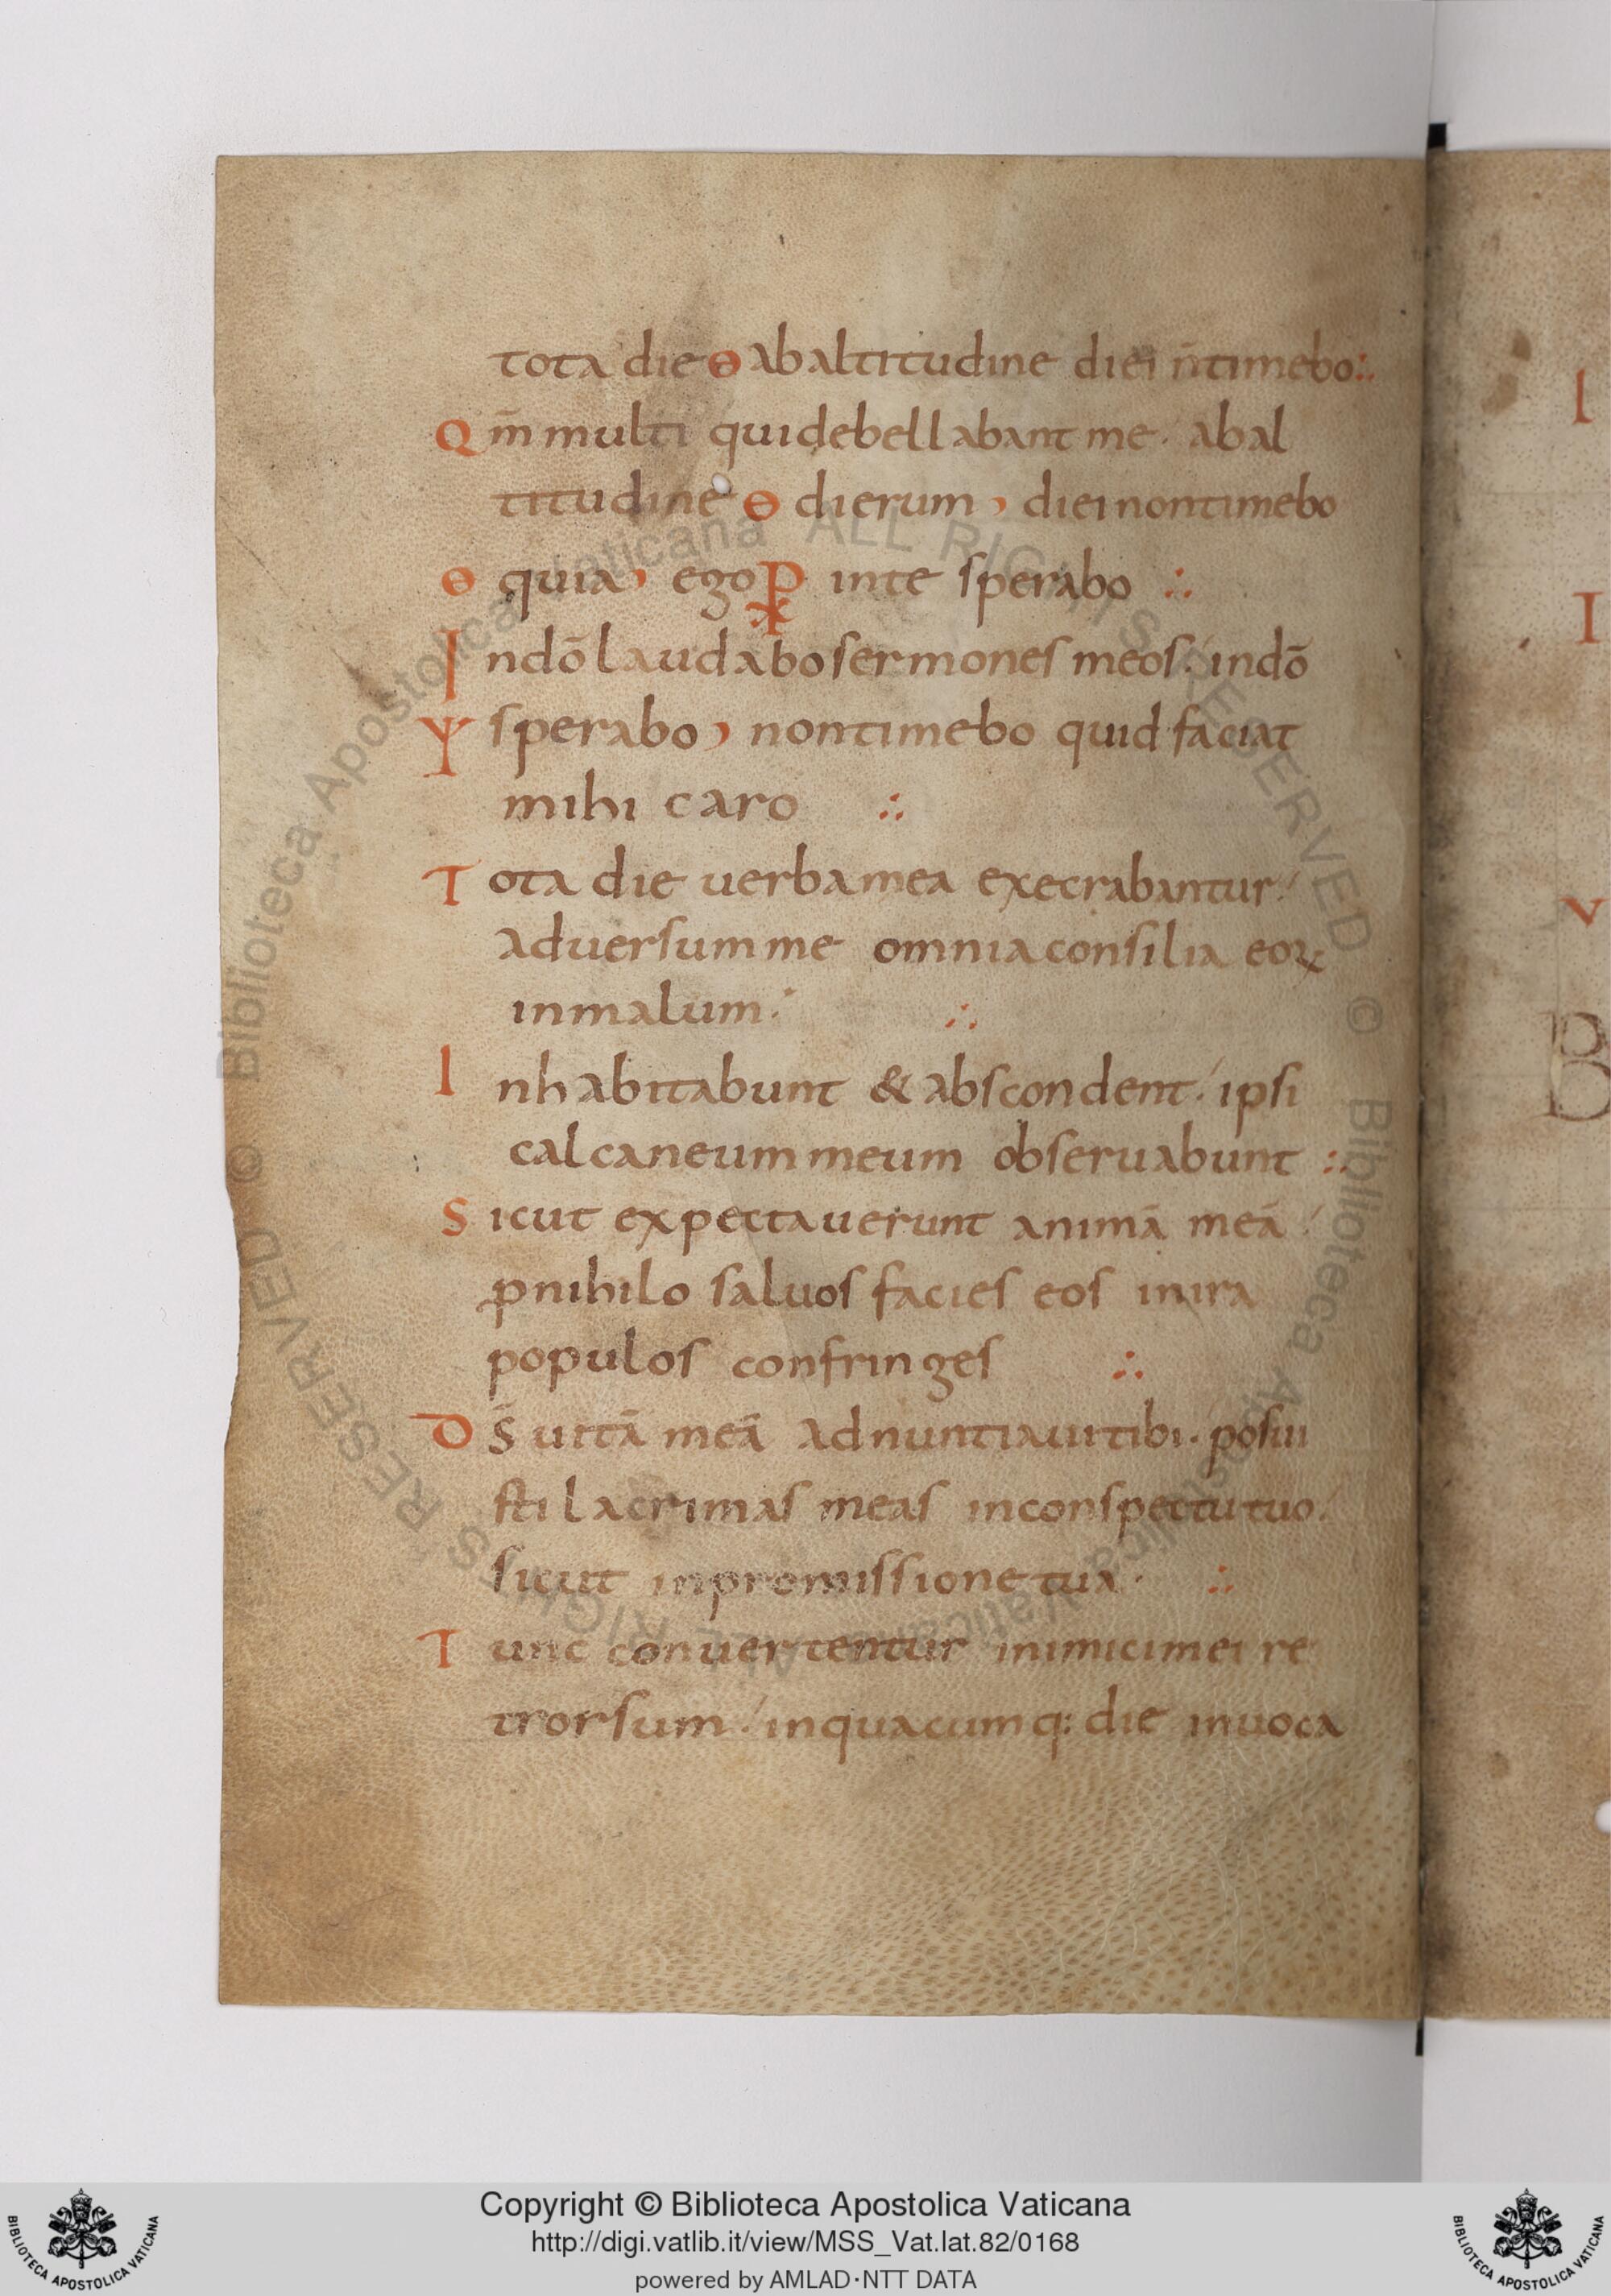 tota die ɵ ab altitudine diei n̄ timebo ∴
Qm̄ multi qui debellabant me · ab al
titudine ɵ dierum , diei non timebo
ɵ quia , ego ⳩ in te sperabo ∴
In dō laudabo sermones meos ·/ in dō
Ψ sperabo , non timebo quid faciat
mihi caro ∴
Tota die uerba mea execrabantur ·/
aduersum me omnia consilia eoꝝ
in malum ·/ ∴
Inhabitabunt & abscondent ·/ ipsi
calcaneum meum obseruabunt ∴
Sicut expectauerunt animā meā ·/
ꝓ nihilo saluos facies eos in ira
populos confringes ∴
DS̄ uitā meā adnuntiaui tibi · posui
sti lacrimas meas in conspectu tuo ·/
sicut in promissione tua · ∴
Tunc conuertentur inimici mei re
trorsum ·/ in quacumq: die inuoca
I
I
V
B
© Biblioteca Apostolica Vaticana ALL RIGHTS RESERVED © Biblioteca Apostolica Vaticana ALL RIGHTS RESERVED
Copyright © Biblioteca Apostolica Vaticana
http://digi.vatlib.it/view/MSS_Vat.lat.82/0168
powered by AMLAD·NTT DATA
BIBLIOTECA APOSTOLICA VATICANA
BIBLIOTECA APOSTOLICA VATICANA